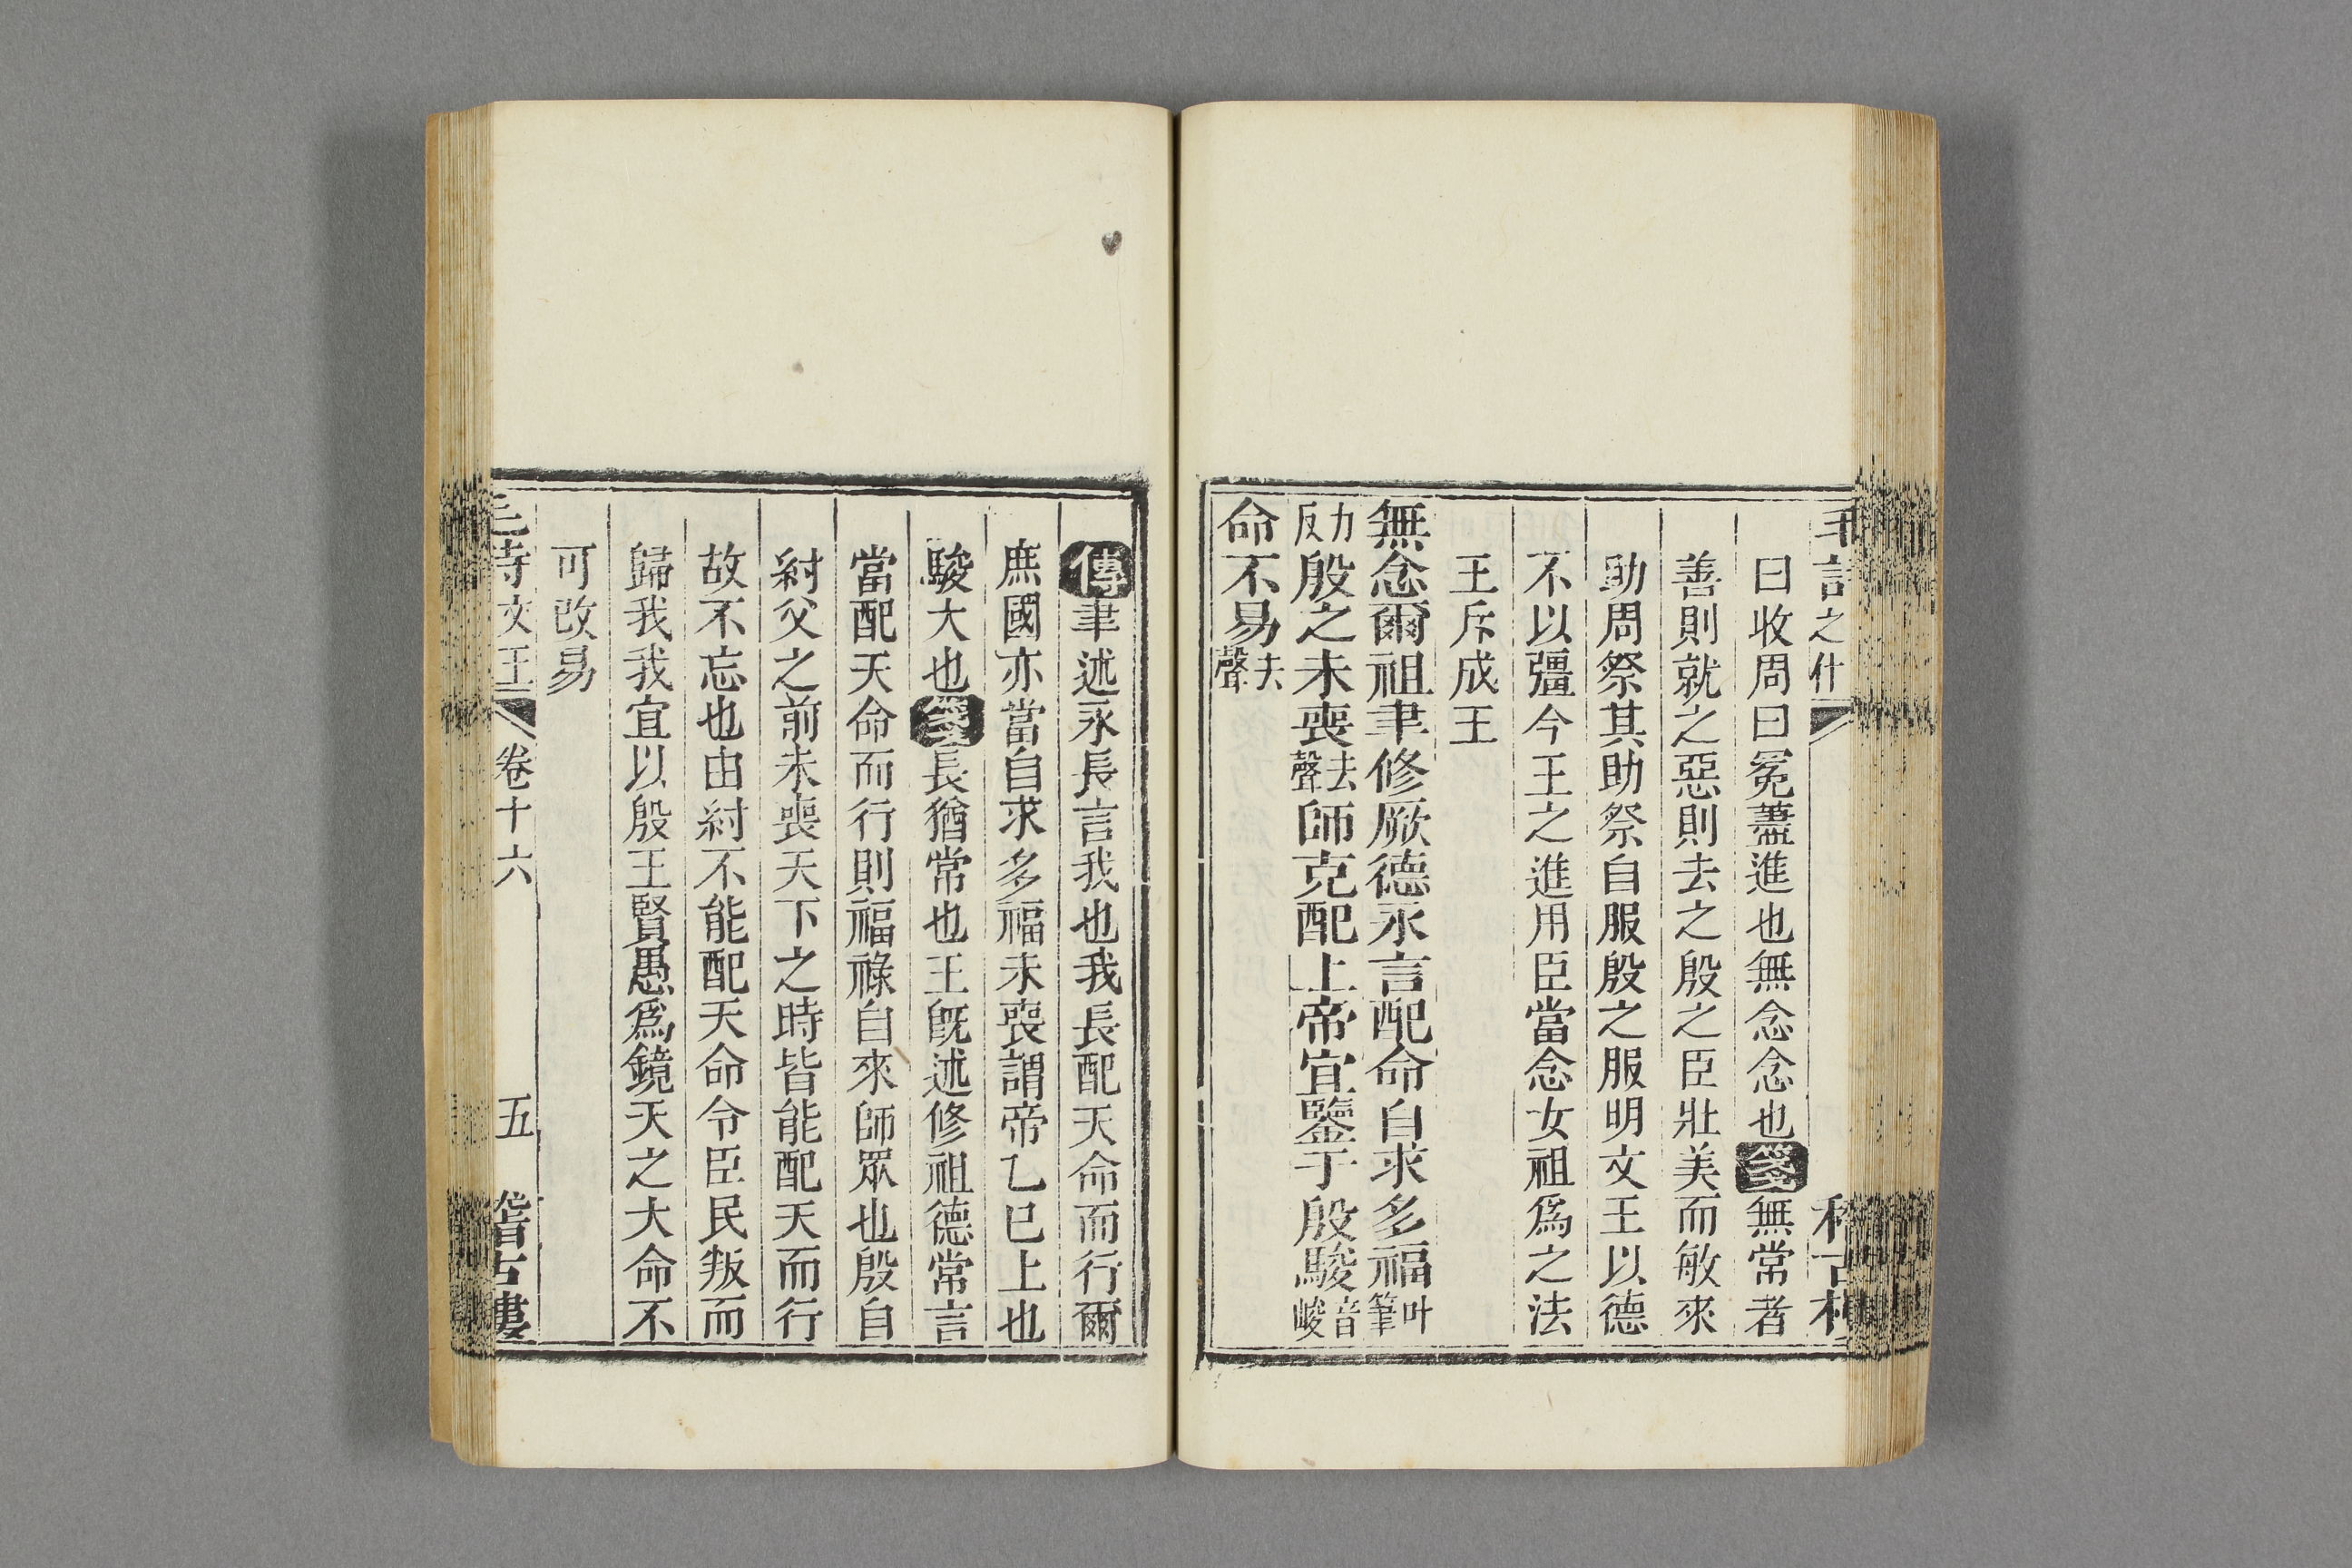 詩之什
曰收周曰冕藎進也無念念也箋無常者
善則就之惡則去之殷之臣壯美而敏來
助周祭其助祭自服殷之服明文王以德
不以彊今王之進用臣當念女祖爲之法
王斥成王
無念爾祖聿修厥德永言配命自求多福叶筆
力反殷之未喪去聲師克配上帝宜鑒于殷駿音峻
命不易去聲
傳聿述永長言我也我長配天命而行爾
庶國亦當自求多福未喪謂帝乙巳上也
駿大也箋長猶常也王旣述修祖德常言
當配天命而行則福祿自來師眾也殷自
紂父之前未喪天下之時皆能配天而行
故不忘也由紂不能配天命令臣民叛而
歸我我宜以殷王賢愚爲鏡天之大命不
可改易
毛詩文王 卷十六 五 稽古樓